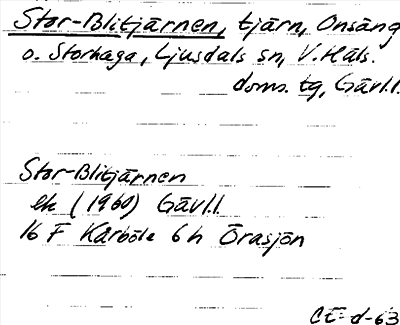 Stor-Blitjärnen, tjärn, Onsäng
o. Storhaga, Ljusdals sn, V. Häls.
doms. tg, Gävl.l.
Stor-Blitjärnen
ek (1960) Gävl.l.
16 F Kårböle 6h Örasjön
CE-d-63